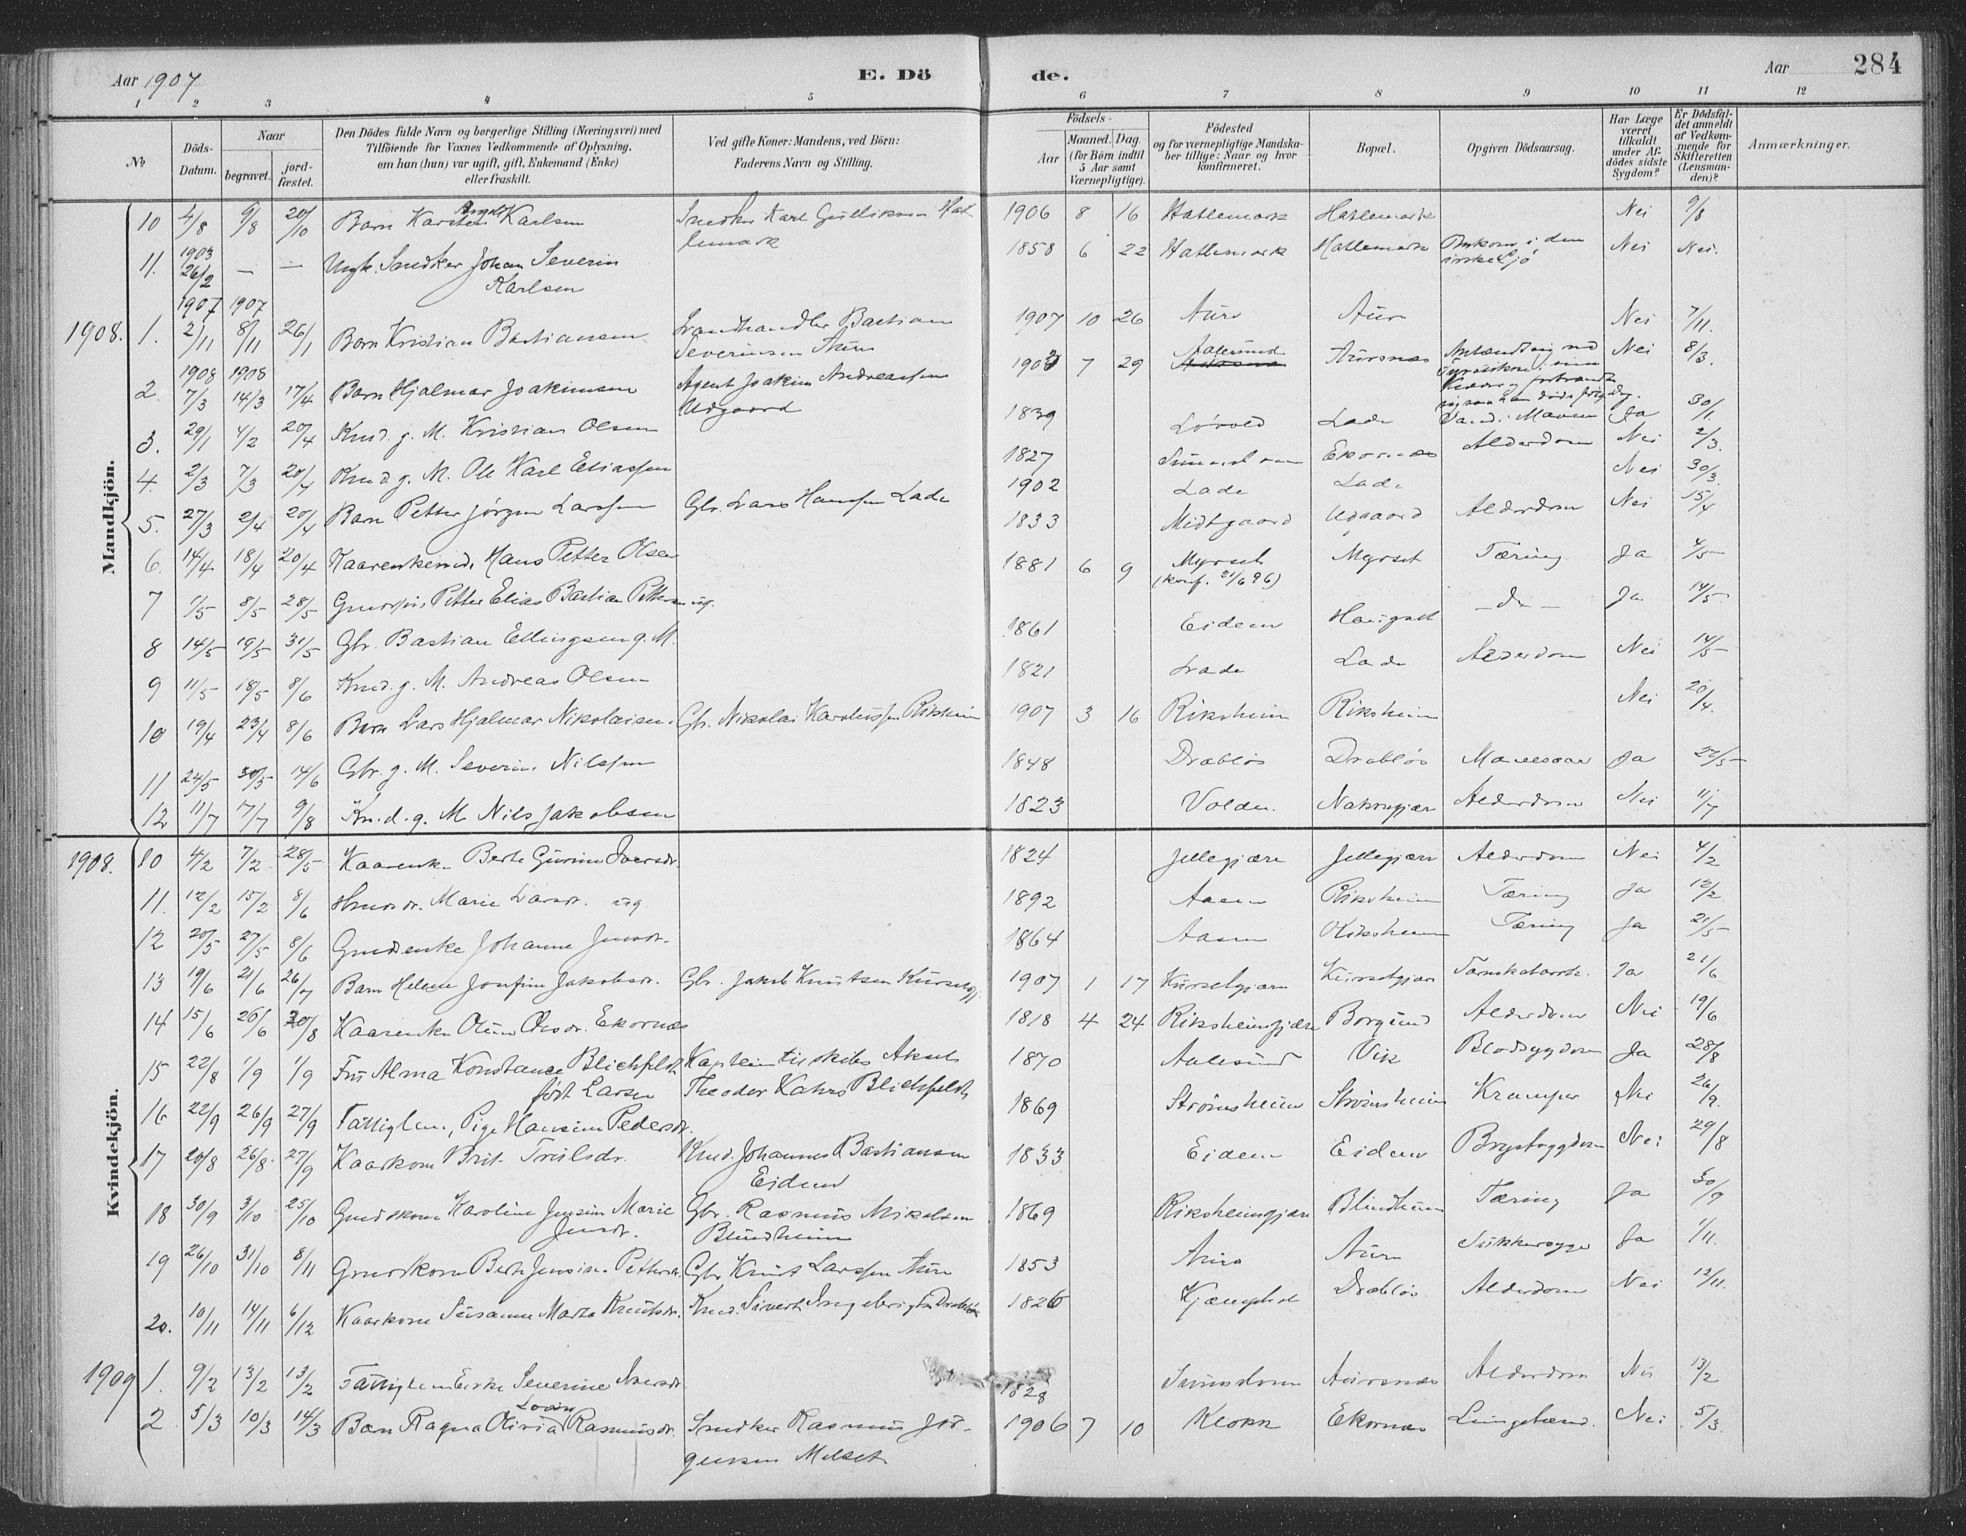 Aar 1907 E. Dö de. Aar 284
1 2 3 4 5 6 7 8 9 10 11 12
№ Döds-Datum. Naar begravet. jord-fæstet. Den Dödes fulde Navn og borgerlige Stilling (Næringsvei) med Tilföiende for Voxnes Vedkommende af Oplysning, om han (hun) var ugift, gift, Enkemand (Enke) eller fraskilt. Ved gifte Koner: Mandens, ved Börn: Faderens Navn og Stilling. Födsels- Aar Maaned. Dag. (for Börn indtil 5 Aar samt Værnepligtige). Födested og for værnepligtige Mandskaber tillige: Naar og hvor konfirmeret. Bopæl. Opgiven Dödsaarsag. Har Læge været tilkaldt under Afdödes sidste Sygdom? Er Dödsfaldet anmeldt af Vedkommende for Skifteretten (Lensmanden)? Anmærkninger.
Mandkjön.
10 4/8 9/8 20/10 Barn Karsten Karlsen Smdker Karl Gulliksen Hatlemark 1906 8 16 Hatlemark Hatlemark Nei 9/8
11. 1903 26/2 — — Ungk. Smdker Johan Severin Karlsen 1858 6 22 Hatlemark Hatlemark Omkom i den Nei Nei.
1908. 1. 1907 2/11 1907 8/11 26/1 Barn Kristian Bastiansen Landhandler Bastian Severinsen Aure 1907 10 26 Aure Aure Nei 7/11.
2. 1908 7/3 1908 14/3 17/4 Barn Hjalmar Joakimsen Agent Joakim Andreassen Udgaard 7 29 Aalesund Aursnes Nei 8/3.
3. 29/1 4/2 20/4 Knd. g. M. Kristian Olsen 1839 Lørvold Lade Ja 30/1
4. 2/3 7/3 20/4 Knd. g. M. Ole Karl Eliassen 1827 Ekornæs Alderdom Nei 2/3.
5. 27/3 2/4 20/4 Barn Petter Jørgen Larssen Gbr. Lars Hanssen Lade 1902 Lade Lade Nei 30/3.
6. 14/4 18/4 20/4 Kaarenkemd. Hans Petter Olsen 1833 Midtgaard Udgaard Alderdom Nei 15/4
7 1/5 8/5 28/5 Petter Elias Bastian Pettersen ug. 1881 6 9 Myrset (konf. 21/6 96) Myrset Tæring Ja 4/5
8 14/5 19/5 31/5 Gbr. Bastian Ellingsen g. M. 1861 Eidem Haugset — do — Ja 14/5
9 11/5 18/5 8/6 Knd. g. M. Andreas Olsen 1821 Lade Lade Alderdom Nei 14/5
10 19/4 23/4 8/6 Barn Lars Hjalmar Nikolaisen. Gbr. Nikolai Karolussen Riksheim 1907 3 16 Riksheim Riksheim Nei 20/4.
11 24/5 30/5 14/6 Gbr. g. M. Severin Nilssen 1848 Drabløs Drabløs Mavesaar Ja 27/5
12 11/7 17/7 9/8 Knd. g. M Nils Jakobsen 1823 Volden. Alderdom Nei 11/7
Kvindekjön.
1908. 10 4/2 7/2 28/5 Kaarenke Berte Gurine Iversdr. 1824 Jellegjære Jellegjære Alderdom Nei 4/2
11. 12/2 15/2 8/6 Marie Larsdr. ug. 1892 Aasen Riksheim Tæring Ja 12/2
12 20/5 27/5 8/6 Gmdenke Johanne Jensdr. 1864 Aasen Riksheim Tæring Ja 21/5
13 19/6 21/6 26/7 Barn Helene Josefine Jakobsdr. Gbr. Jakob Knutsen Kurset 1907 1 17 Kursetgjære Kursetgjære Tarmkatarrh. Ja 21/6
14 15/6 26/6 20/8 Kaarenke Oline Olsdr. Ekornæs 1818 4 24 Riksheimgjære Borgund Alderdom Nei 19/6
15 22/8 1/9 1/9 Fru Alma Konstance Blichfeldt født Larsen Kaptein til skibs Aksel Theodor Kahrs Blichfeldt 1870 Aalesund Vik Blodsygdom Ja 28/8
16 22/9 26/9 27/9 Fattiglem, Pige Hansine Pedersdr. 1869 Strømsheim Strømsheim Kramper Nei 26/9.
17 20/8 26/8. 27/9 Kaarkone Brit Truls dr. Knd. Johannes Bastiansen Eidem 1833 Eidem Eidem Brystsygdom Nei 29/8
18 30/9 3/10 25/10 Gmdskone Karoline Jensine Marie Jensdr. Gbr. Rasmus Mikalsen Blindheim 1869 Riksheimgjære Blindheim Tæring Ja 30/9
19 26/10 31/10 8/11 Gmdskone Berte Jensine Pettersdr. Gbr Knut Larssen Aure 1853 Aure Aure Sukkersyge Ja 1/11.
20. 10/11 14/11 6/12 Kaarkone Susanne Marta Knutsdr. Knd. Sivert Ingebrigtsen Drabløs 1826 Drabløs Alderdom Nei 13/11.
1909 1. 9/2 13/2 13/2 Fattiglem Enke Severine Iversdr. 1828 Aursnes Alderdom Nei 13/2
2 5/3 10/3 14/3 Barn Ragna Olivia Lovise Rasmusdr. Smdker Rasmus Jørgensen Melset 1906 7 10 Klokk Ekornæs Lungebænd. Nei 5/3.